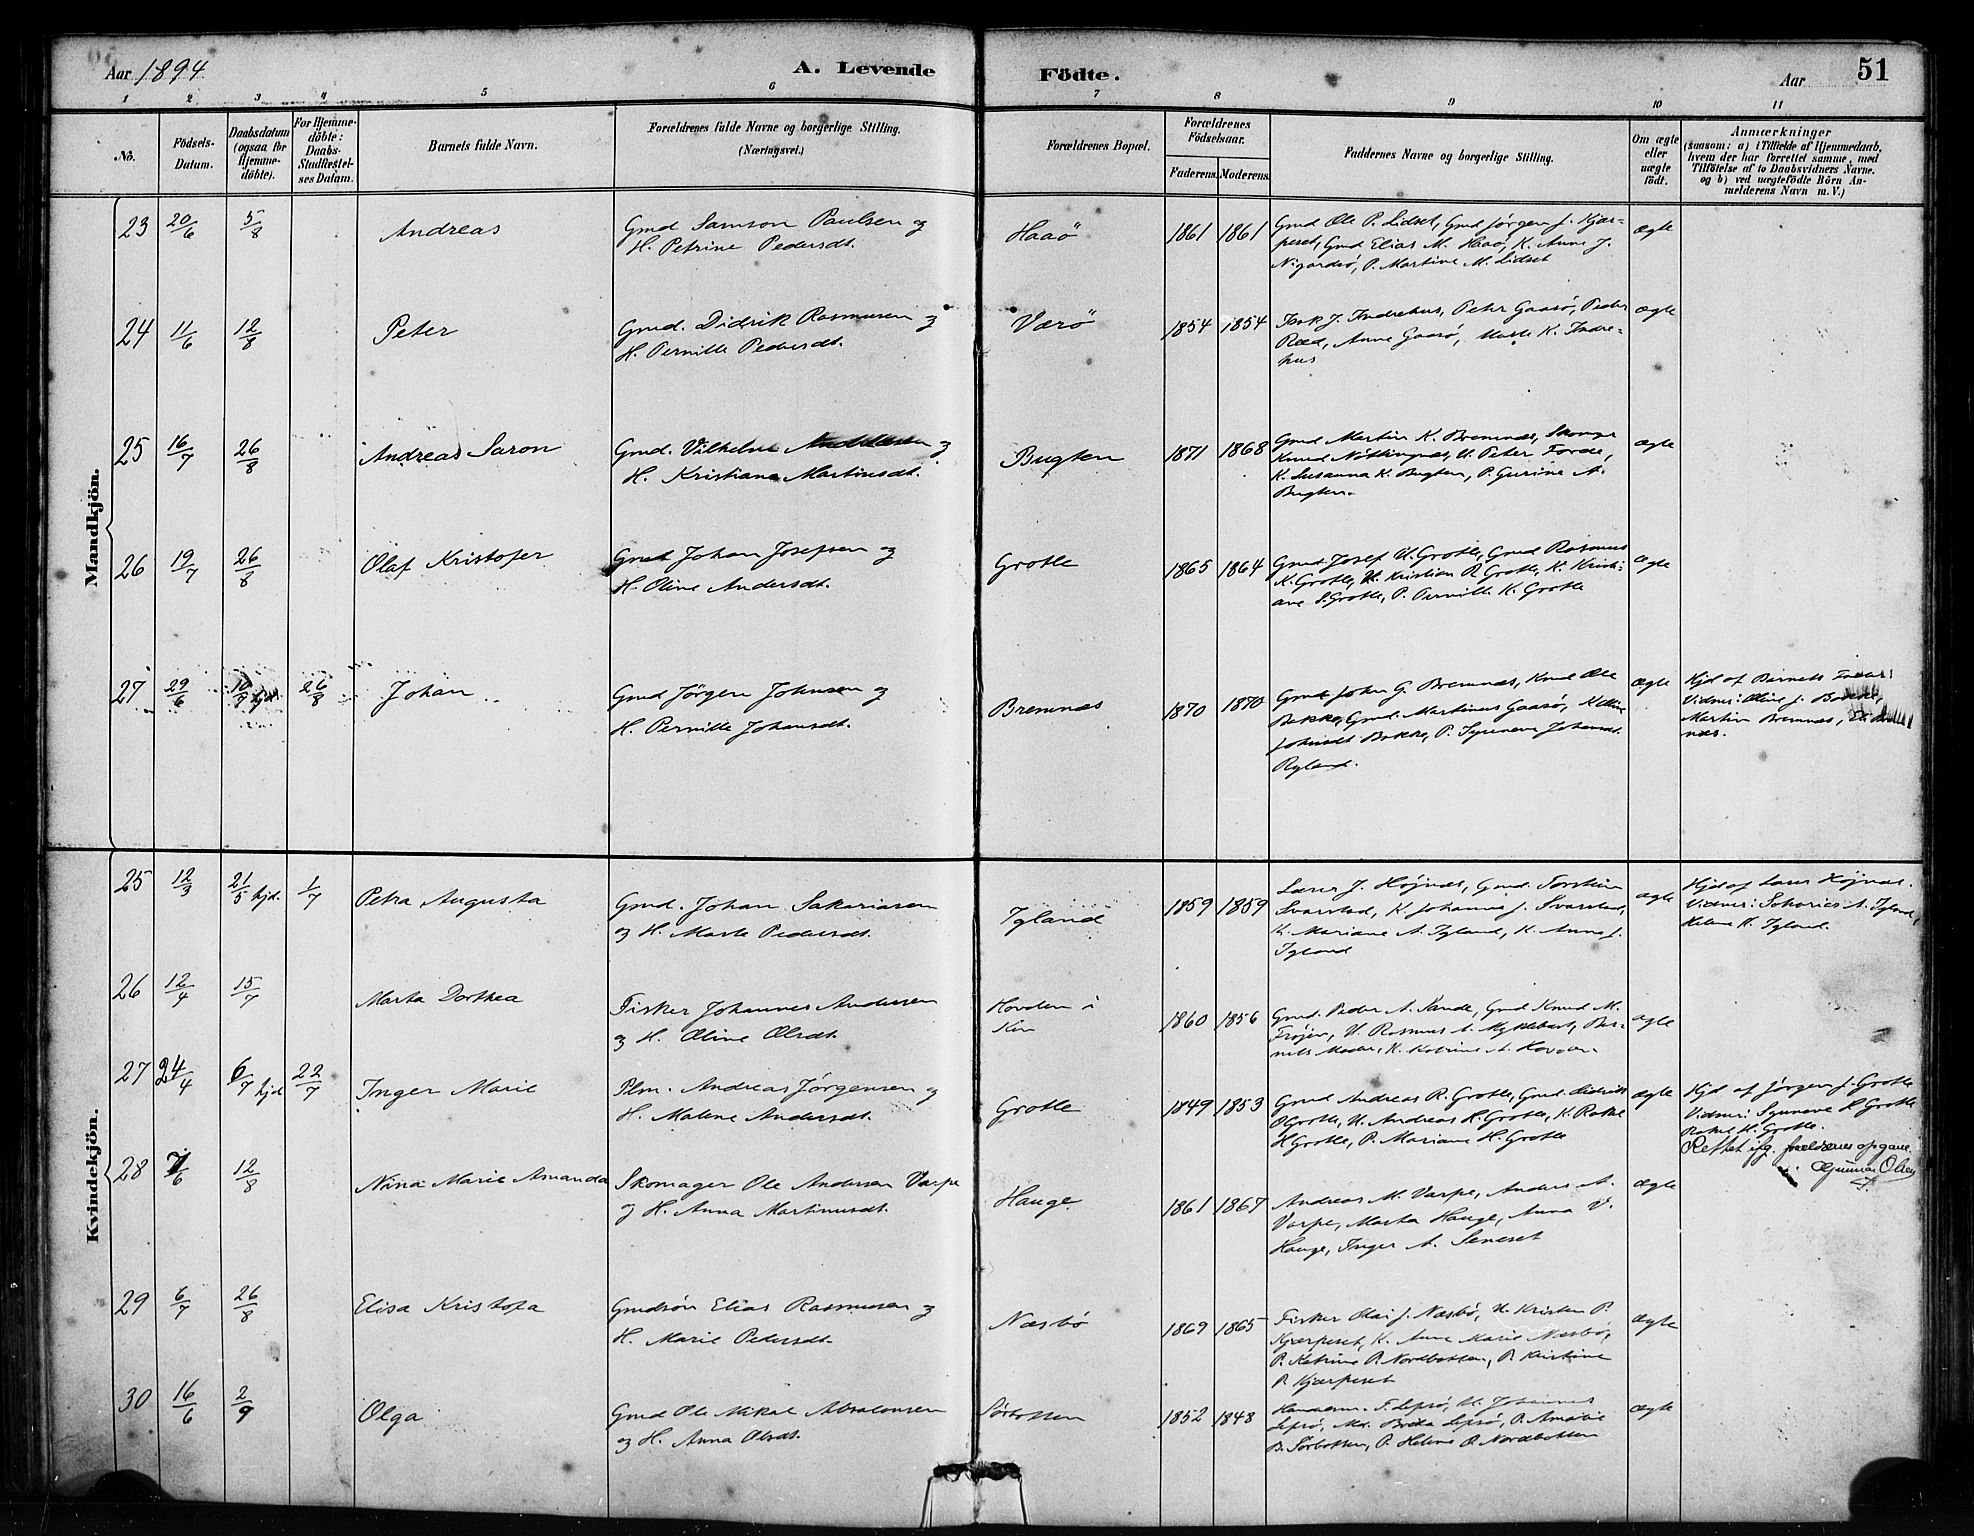 Aar 1894.
A. Levende Födte.
Aar
51
1 2 3 4 5 6 7 8 9 10 11
No.
Födsels-
Datum.
Daabsdatum
(ogsaa for
Hjemme-
döbte).
For Hjemme-
döbte:
Daabs-
Stadfæstel-
ses Datum.
Barnets fulde Navn.
Forældrenes fulde Navne og borgerlige Stilling.
(Næringsvei.)
Forældrenes Bopæl.
Forældrenes
Födselsaar.
Faderens. Moderens.
Faddernes Navne og borgerlige Stilling.
Om ægte
eller
uægte
födt.
Anmærkninger
(saasom: a) i Tilfælde af Hjemmedaab,
hvem der har forrettet samme, med
Tilföielse af to Daabsvidners Navne.
og b) ved uægtefödte Börn An-
melderens Navn m. V.)
Mandkjön.
23 20/6 5/8 Andreas Gmd Samson Paulsen og Haaö 1861 1861 Gmd Ole P. Lidset, Gmd Jørgen J. Kjær- ægte
H. Petrine Pedersdt. peset, Gmd Elias M. Haaö, K. Anne J.
Nigardsö, P. Martine M. Lidset
24 11/6 12/8 Peter Gmd. Didrik Rasmusen og Værö 1854 1854 J. Indrehus, Peter Gaasö, Peder ægte
H. Pernille Pedersdt. Anne Gaasö, K. Indre-
hus
25 16/7 26/8 Andreas Saron Gmd. Vilhelm og Bugten 1871 1868 Gmd Martin K. Bremnæs, ægte
H. Kristiane Martinusdt. Knud Nöttingnæs, U. Peter Forde,
K. Susanna K. Bugten, P. Gurine A.
Bugten.
26 19/7 26/8 Olaf Kristofer Gmd Johan Josefsen og Grotle 1865 1864 Gmd Josef U. Grotle, Gmd Rasmus ægte
H. Oline Andersdt. K. Grotle, U. Kristian R. Grotle, K. Kristi-
ane S. Grotle, P. Pernille K. Grotle
27 29/6 10/7 hjd. 26/8 Johan Gmd Jörgen Johnsen og Bremnæs 1870 1870 Gmd John G. Bremnæs, Ole ægte Hjd af Barnets
H. Pernille Johansdt. Bakke, Gmd. Martinus Gaasö, K. Vidner: Oline J.
Johnsdt Bakke, P. Synneve Johansdt. Martin Bremnæs,
Ryland. næs.
Kvindekjön.
25 12/3 21/5 hjd. 1/7 Petra Augusta Gmd. Johan Sakariasen Igland 1859 1859 Lærer J. Höjnæs, Gmd. Torstein ægte Hjd af Lærer Höjnæs.
og H. Marte Pedersdt. Svarstad, K. Johanne J. Svarstad, Vidner: Sakarias A. Igland,
K. Mariane A. Igland, K. Anna J. Helene K. Igland.
Igland
26 12/4 15/7 Marta Dorthea Fisker Johannes Andersen Hovden i 1860 1856 Gmd. Peder A. Sande, Gmd Knud M. ægte
og H. Oline Olsdt. Kin Fröjen, U. Rasmus A. Myklebust, Bar-
nets Moder, K. Katrine A. Hovden.
27 24/4 6/7 hjd 22/7 Inger Marie Plm. Andreas Jörgensen og Grotle 1849 1853 Gmd Andreas R. Grotle, Gmd. Didrik ægte Hjd af Jörgen J. Grotle
H. Malene Andersdt. O Grotle, U. Andreas H. Grotle, K. Rakel Vidner: Synneve H Grotle
H Grotle, P. Mariane H. Grotle Rakel H. Grotle.
Rettet iflg. foreldrenes opgave.
Gunnar Olsen
28 7/6 12/8 Nina Marie Amanda Skomager Ole Andersen Varpe Hauge. 1861 1867 Andreas M. Varpe, Anders A. ægte
og H. Anna Martinusdt. Varpe, Marta Hauge, Anna V.
Hauge, Inger A. Seneset
29 6/7 26/8 Elisa Kristofa Gmdsön Elias Rasmusen og Næsbö 1869 1865 Fisker Olai J. Næsbö, U. Kristen P. ægte
H. Marie Pedersdt. Kjærpeset, K. Anne Marie Næsbö,
P. Katrine P. Nordbotten, P. Kristine
P. Kjærpeset
30 16/6 2/9 Olga Gmd Ole Mikal Absalonsen Sörbotten 1852 1848 F. Lefsö, U. Johannes ægte
og H. Anna Olsdt. Lefsö, Brita Lefsö, P. Amalie
B. Sörbotten, P. Helene O. Nordbotten